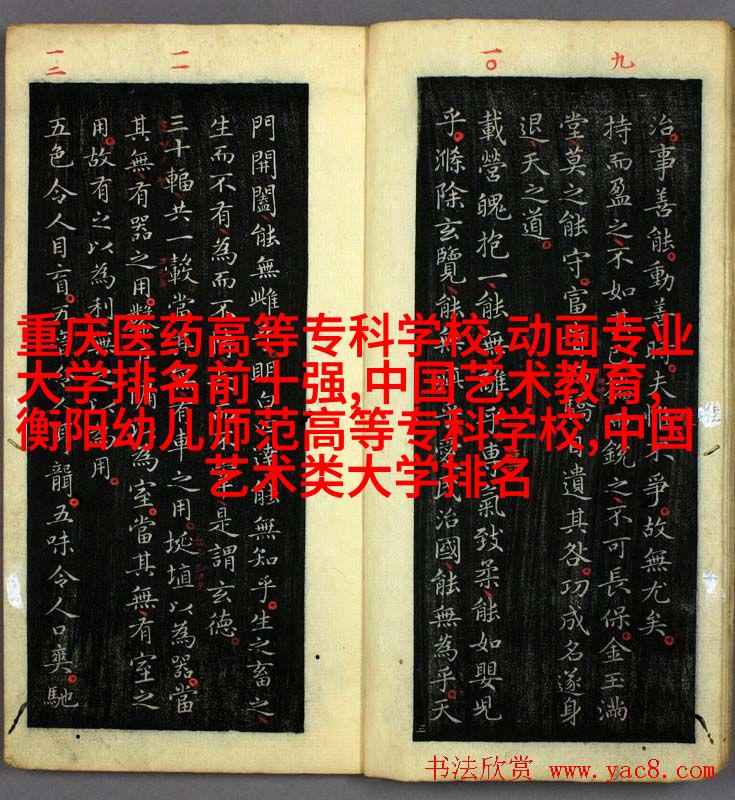 九
一〇
一一
一二
治事善能動善時夫惟不爭故無尤矣
持而盈之不如其已 銳之不可長保金玉滿
堂莫之能守富 自遺其咎功成名遂身
退天之道
載營魄抱一能無離乎專氣致柔能如嬰児
乎滌除玄覽能無 乎愛民治國能無為乎天
門開闔能無雌 明白 達能無知乎生之畜之
生而不有為而不 是謂玄德
三十輻共一轂當其無有車之用埏埴以為器當
其無有器之用鑿 牖以為室當其無有室之
用故有之以為利無之以為用
五色令人目盲五音令人耳聾五味令人口爽馳
重庆医药高等专科学校,动画专业
大学排名前十强,中国艺术教育,
衡阳幼儿师范高等专科学校,中国
艺术类大学排名
书法欣赏 www.yac8.com